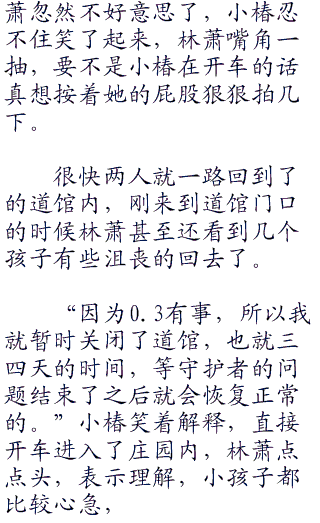 萧忽然不好意思了，小椿忍
不住笑了起来，林萧嘴角一
抽，要不是小椿在开车的话
真想按着她的屁股狠狠拍几
下。
很快两人就一路回到了
的道馆内，刚来到道馆门口
的时候林萧甚至还看到几个
孩子有些沮丧的回去了。
“因为0.3有事，所以我
就暂时关闭了道馆，也就三
四天的时间，等守护者的问
题结束了之后就会恢复正常
的。”小椿笑着解释，直接
开车进入了庄园内，林萧点
点头，表示理解，小孩子都
比较心急，